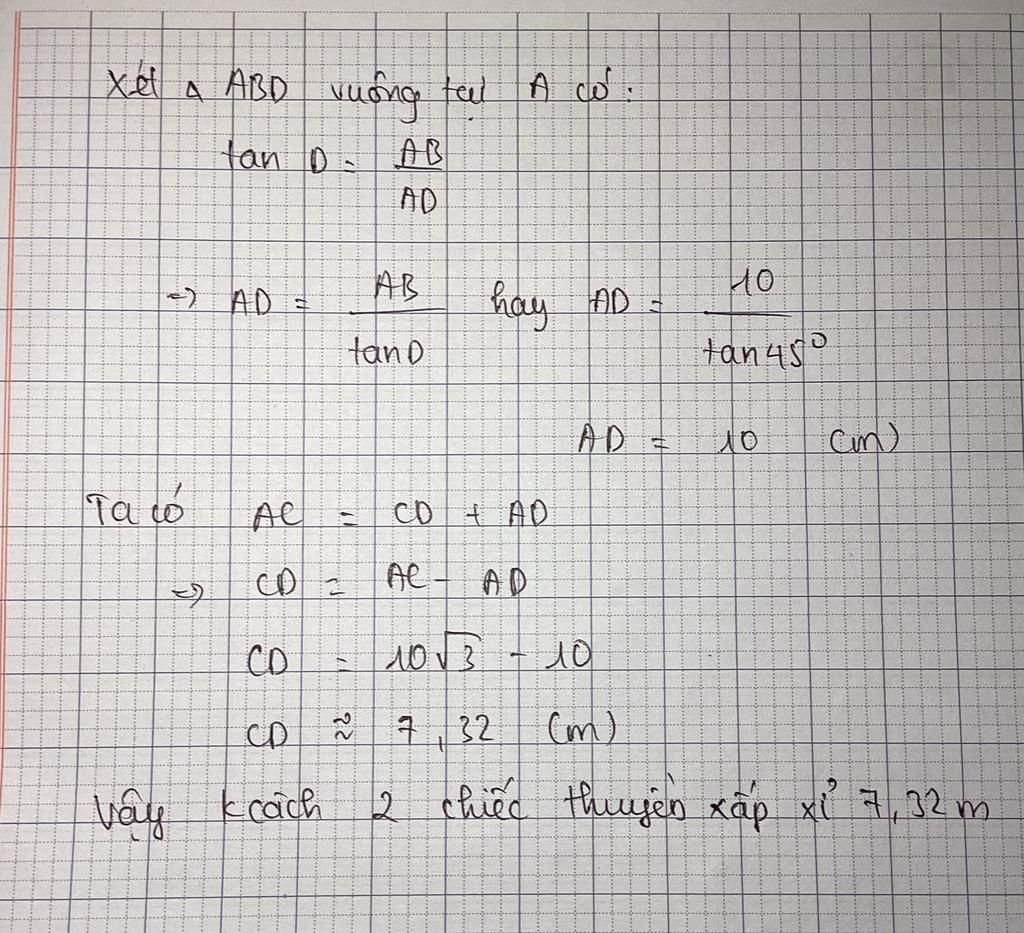 Xét Δ ABD vuông tại A có:
tan D = AB / AD
=> AD = AB / tan D hay AD = 10 / tan 45°
AD = 10 (m)
Ta có AC = CD + AD
=> CD = AC - AD
CD = 10√3 - 10
CD ≈ 7,32 (m)
Vậy kcách 2 chiếc thuyền xấp xỉ 7,32 m